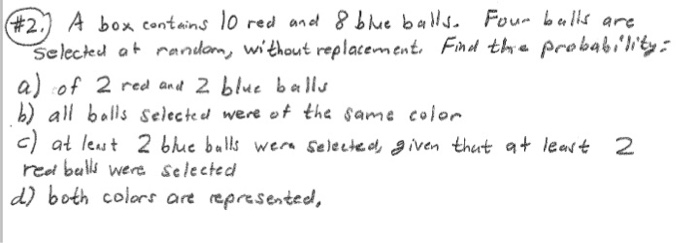 #2.) A box contains 10 red and 8 blue balls. Four balls are
selected at random, without replacement. Find the probability:
a) of 2 red and 2 blue balls
b) all balls selected were of the same color
c) at least 2 blue balls were selected, given that at least 2
red balls were selected
d) both colors are represented,